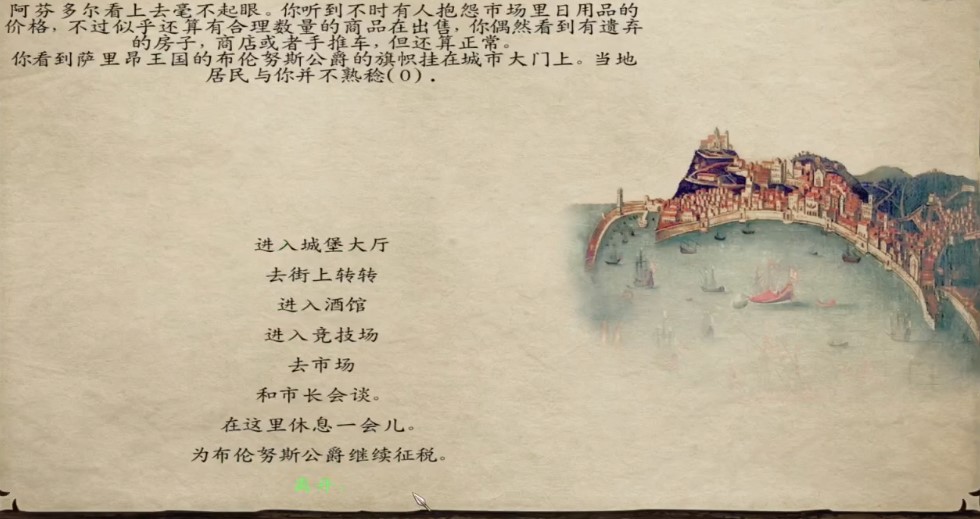 阿芬多尔看上去毫不起眼。你听到不时有人抱怨市场里日用品的
价格，不过似乎还算有合理数量的商品在出售，你偶然看到有遗弃
的房子，商店或者手推车，但还算正常。
你看到萨里昂王国的布伦努斯公爵的旗帜挂在城市大门上。当地
居民与你并不熟稔(0).
进入城堡大厅
去街上转转
进入酒馆
进入竞技场
去市场
和市长会谈。
在这里休息一会儿。
为布伦努斯公爵继续征税。